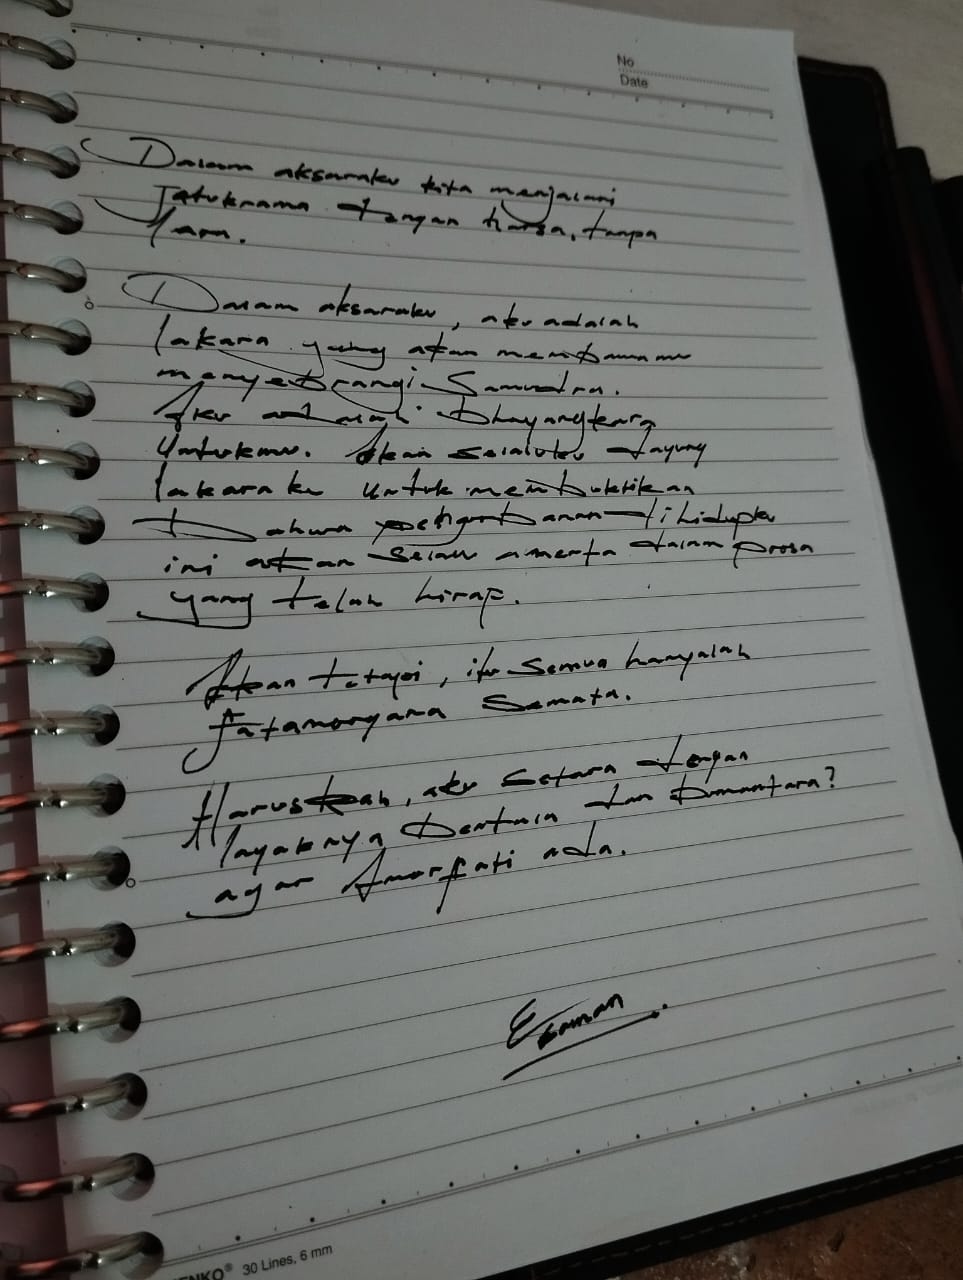 No
Date
Dalam aksaraku kita menjalani
Jatukrama dengan harsa, tanpa
lara.
Dalam aksaraku, aku adalah
lakara yang akan membawamu
menyebrangi Samudra.
Aku adalah bhayangkara
Untukmu. Akan selaluku dayung
lakaraku untuk membuktikan
bahwa pengorbanan dihidupku
ini akan selalu amerta dalam prosa
yang telah hirap.
Akan tetapi, itu semua hanyalah
fatamorgana semata.
Haruskah, aku setara dengan
layaknya bentala dan bumantara?
agar Amorfati ada.
NKO® 30 Lines, 6 mm